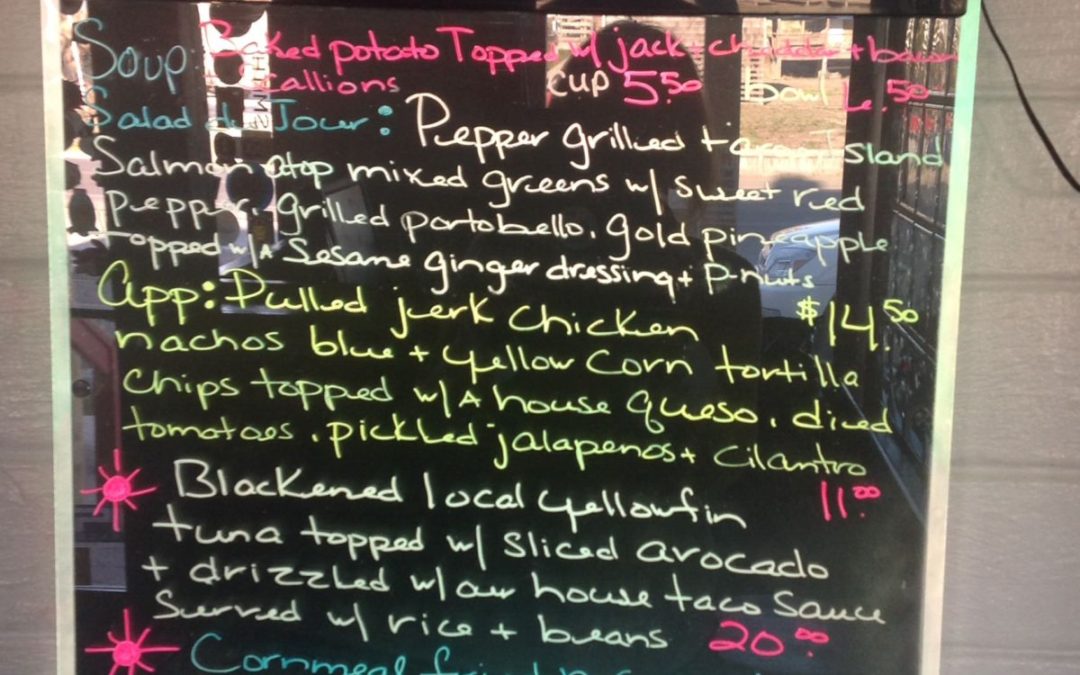 Soup: Baked potato Topped w/ jack + cheddar + bacon
+ Scallions CUP 5.50 Bowl 6.50
Salad du Jour: Pepper grilled Faroe Island
Salmon atop mixed greens w/ sweet red
Pepper, grilled portobello, gold pineapple
Topped w/A Sesame ginger dressing + P-nuts
$14.50
App: Pulled jerk chicken
nachos blue + yellow corn tortilla
chips topped w/A house queso, diced
tomatoes, pickled jalapenos + cilantro
11.00
Blackened local yellowfin
tuna topped w/ sliced avocado
+ drizzled w/ our house taco sauce
Surved w/ rice + beans 20.00
Cornmeal fried